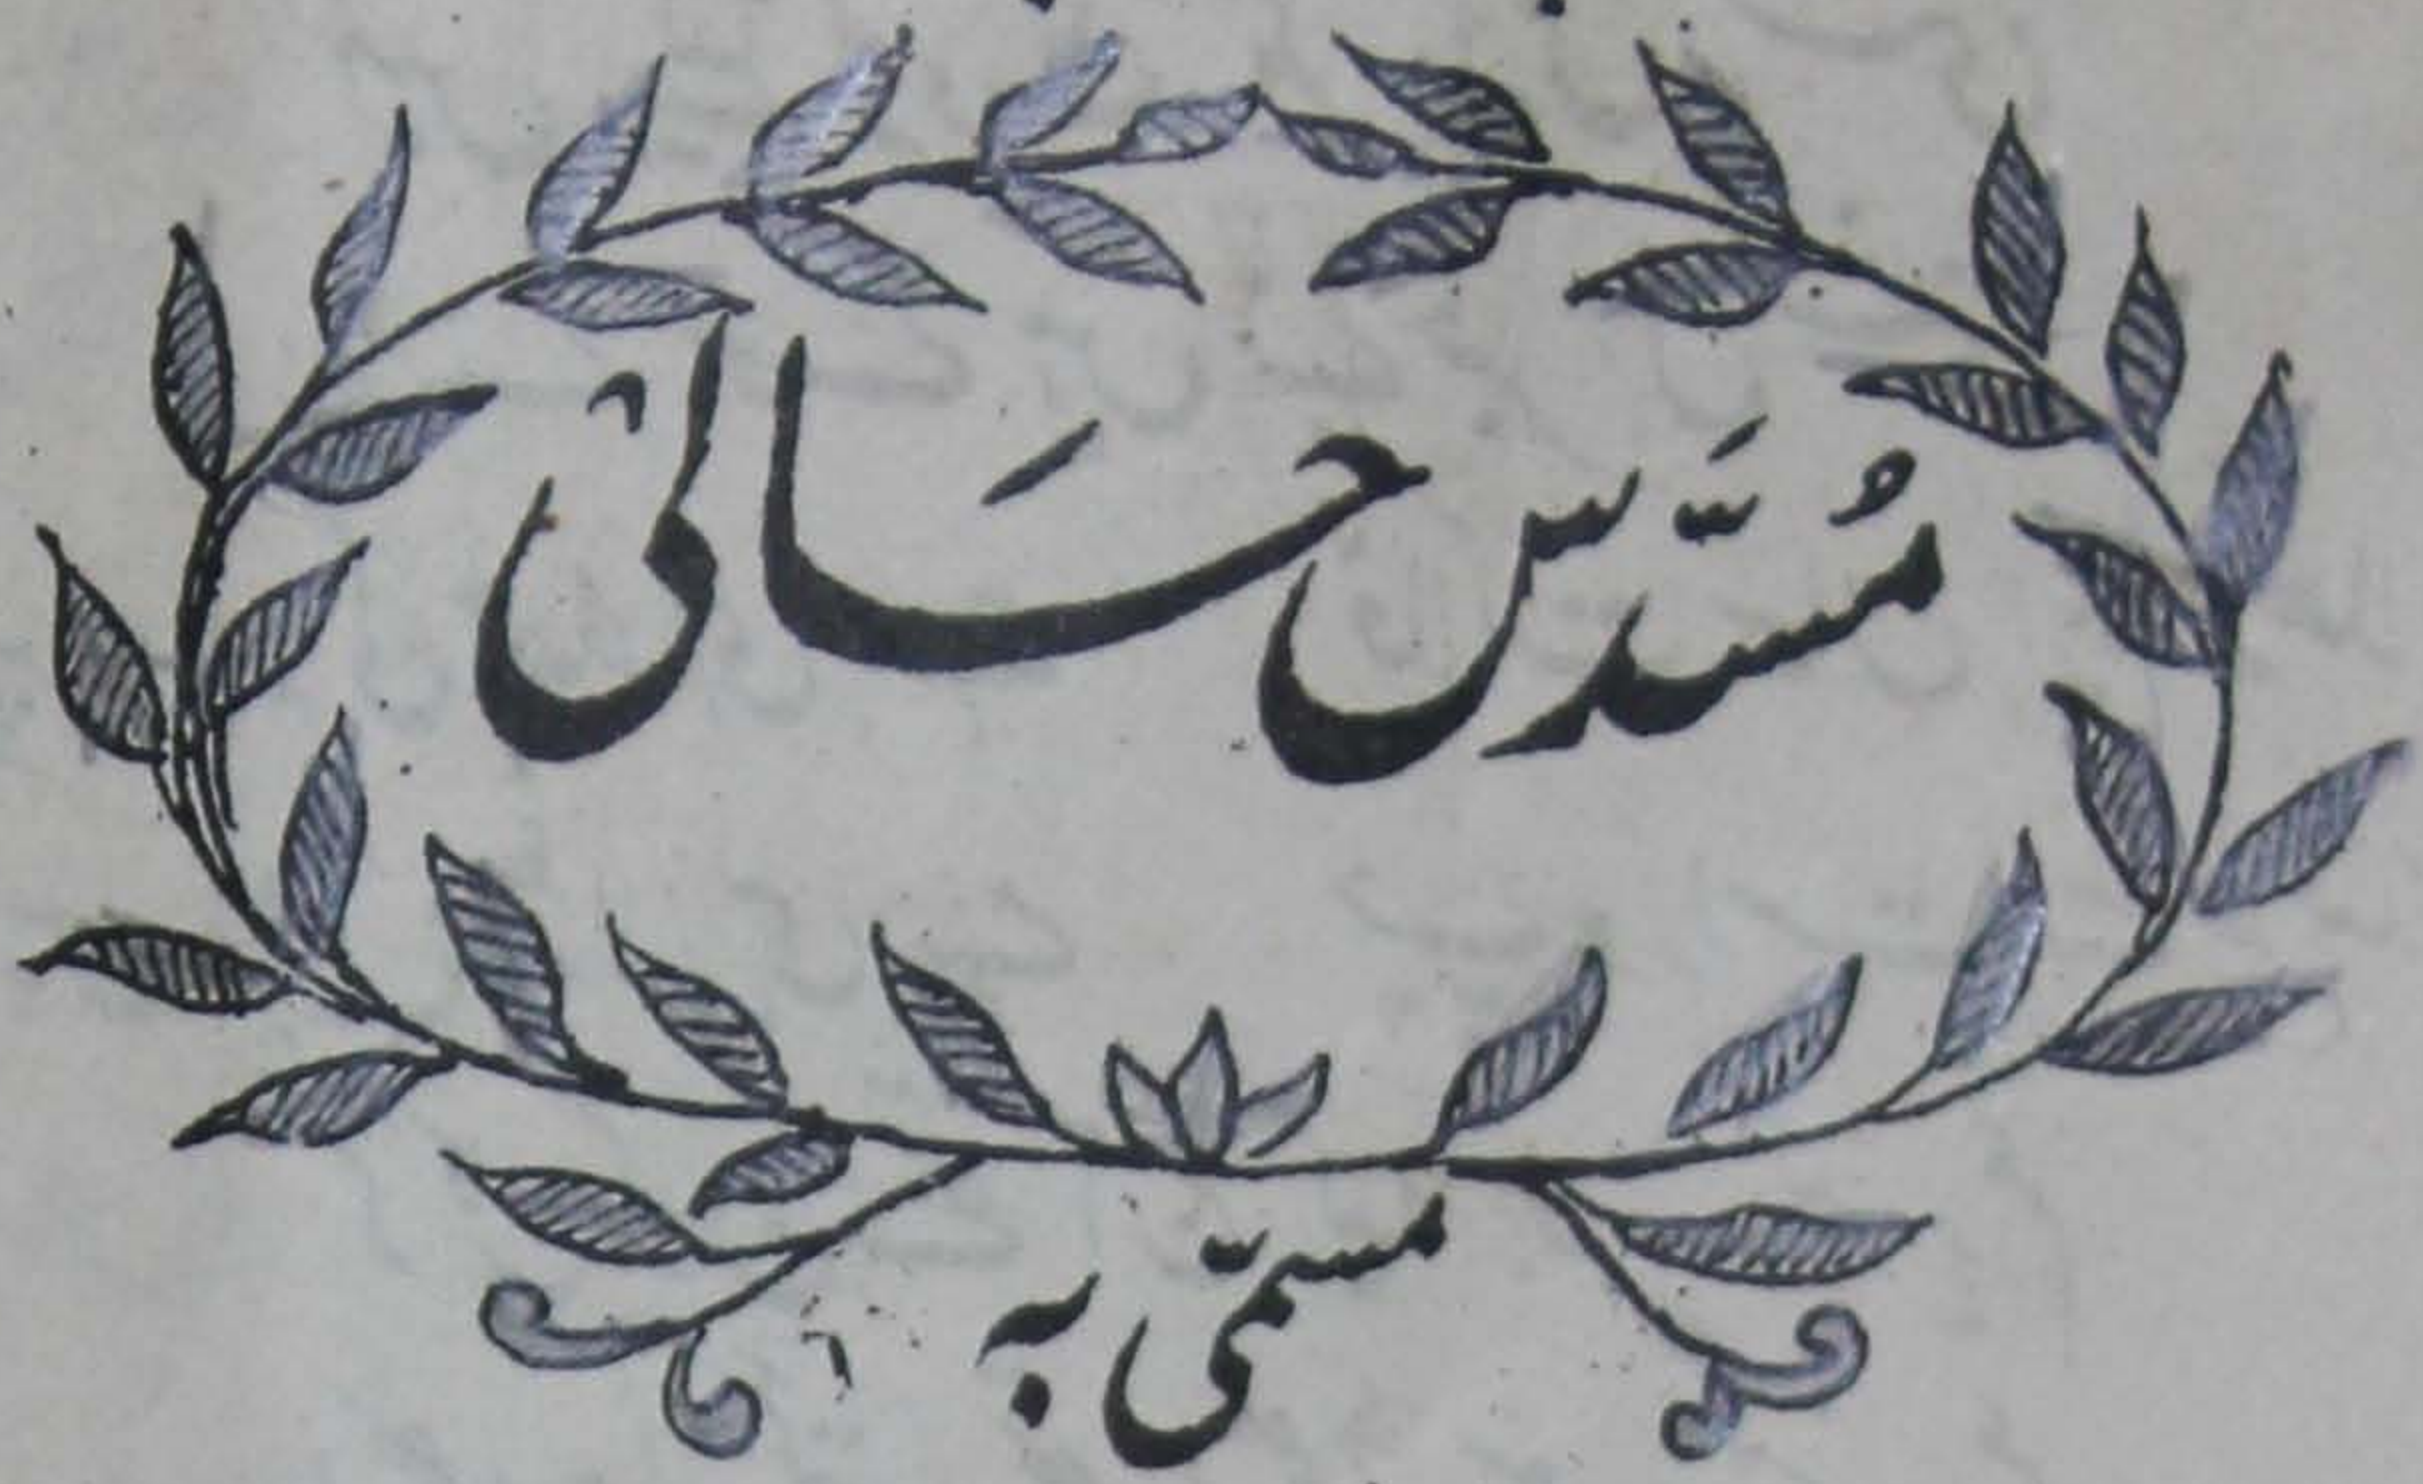 مُسَدَّس حَالیؔ
مسمّی بہ